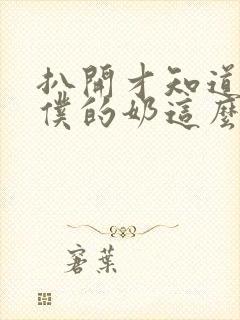 扒開才知道
僕的奶這麼
窨葉